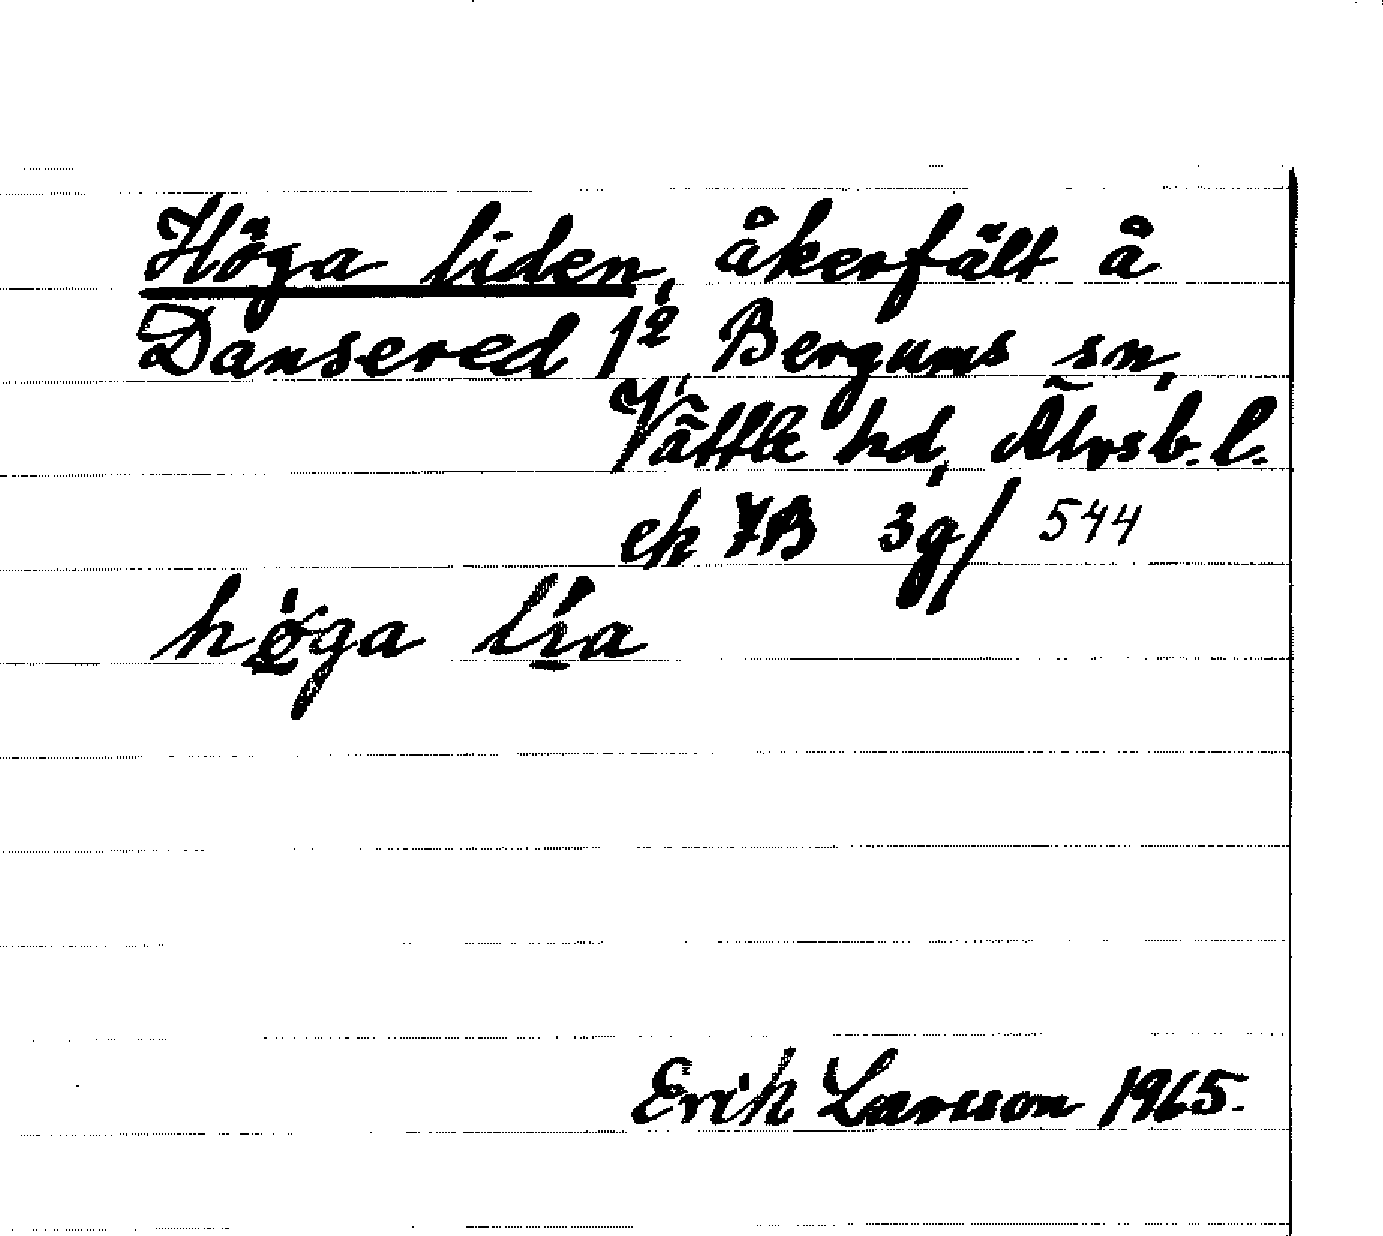 Höga liden, åkerfält å
Dansered 1², Bergums sn,
Vättle hd, Älvsb. l.
ek 7B 3g/ 544
hø̀ga lía
Erik Larsson 1965.